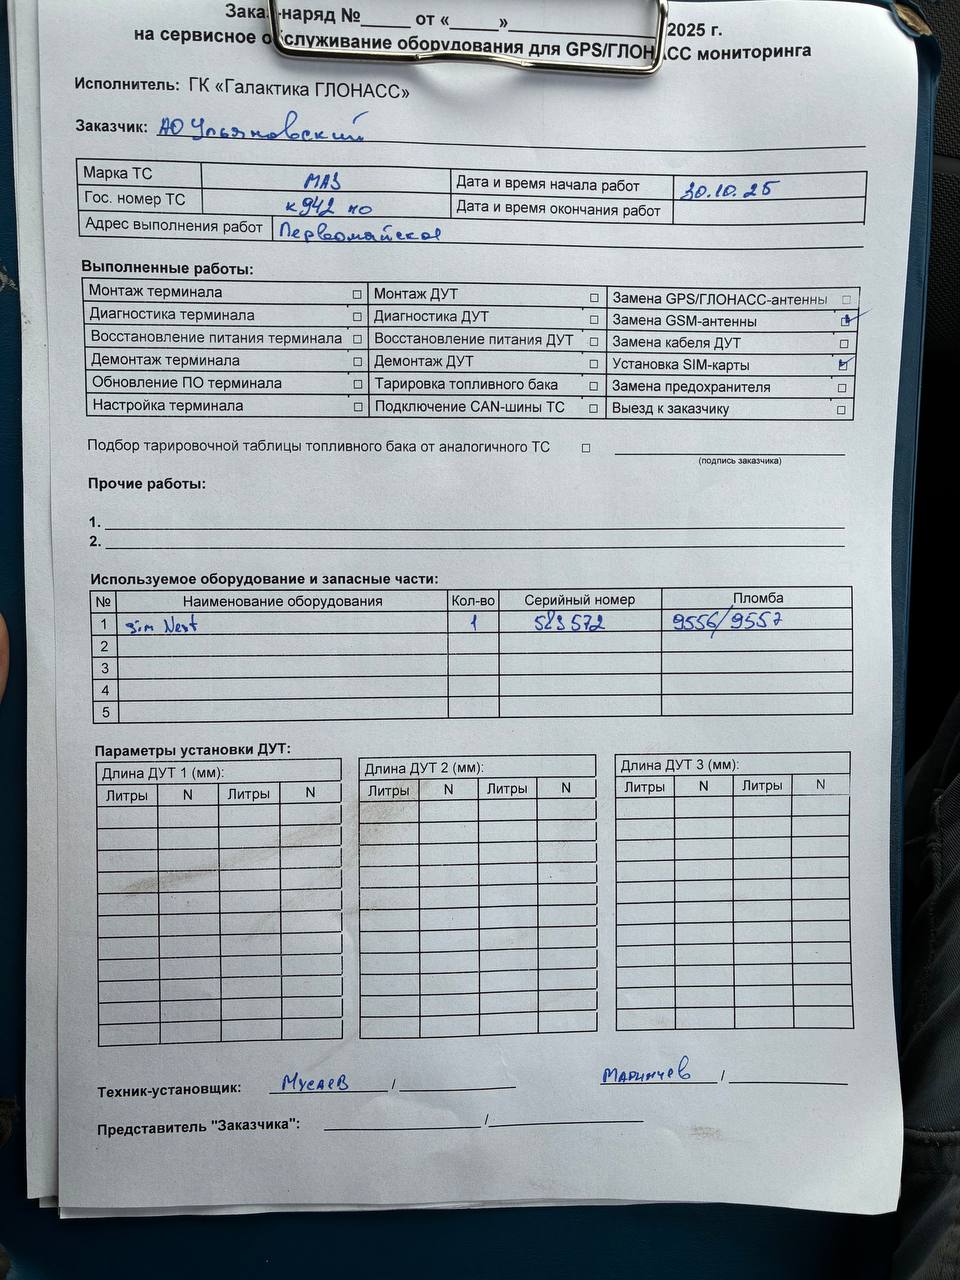 Заказ-наряд №_____ от «_____»_______________2025 г.
на сервисное обслуживание оборудования для GPS/ГЛОНАСС мониторинга
Исполнитель: ГК «Галактика ГЛОНАСС»
Заказчик: АО Ульяновский
Марка ТС МАЗ Дата и время начала работ 30.10.25
Гос. номер ТС к942 но Дата и время окончания работ
Адрес выполнения работ Первомайское
Выполненные работы:
Монтаж терминала □ Монтаж ДУТ □ Замена GPS/ГЛОНАСС-антенны □
Диагностика терминала □ Диагностика ДУТ □ Замена GSM-антенны ☑
Восстановление питания терминала □ Восстановление питания ДУТ □ Замена кабеля ДУТ □
Демонтаж терминала □ Демонтаж ДУТ □ Установка SIM-карты ☑
Обновление ПО терминала □ Тарировка топливного бака □ Замена предохранителя □
Настройка терминала □ Подключение CAN-шины ТС □ Выезд к заказчику □
Подбор тарировочной таблицы топливного бака от аналогичного ТС □
(подпись заказчика)
Прочие работы:
1.
2.
Используемое оборудование и запасные части:
№ Наименование оборудования Кол-во Серийный номер Пломба
1 sim Nest 1 583572 9556/9557
2
3
4
5
Параметры установки ДУТ:
Длина ДУТ 1 (мм): Длина ДУТ 2 (мм): Длина ДУТ 3 (мм):
Литры N Литры N Литры N Литры N Литры N Литры N
Техник-установщик: Мусаев / Маринчев /
Представитель "Заказчика": /